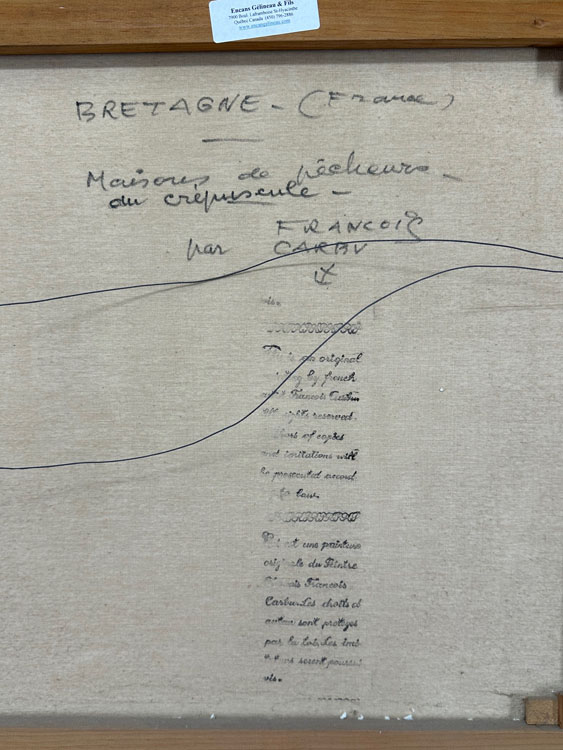 Encans Gélineau & Fils
7900 Boul. Laframboise St-Hyacinthe
Québec Canada (450) 796-2886
www.encangelineau.com
BRETAGNE - (France)
Maisons de pêcheurs -
du crépuscule -
par FRANCOIS
CARBU
vis.
This is an original
by french
François
rights reserved.
of copies
and imitations will
be prosecuted accord
to law.
est une peinture
originale du Peintre
Francois
Carbu.Les droits d
auteur sont protégés
par la loi.Les imi
seront poursui
vis.